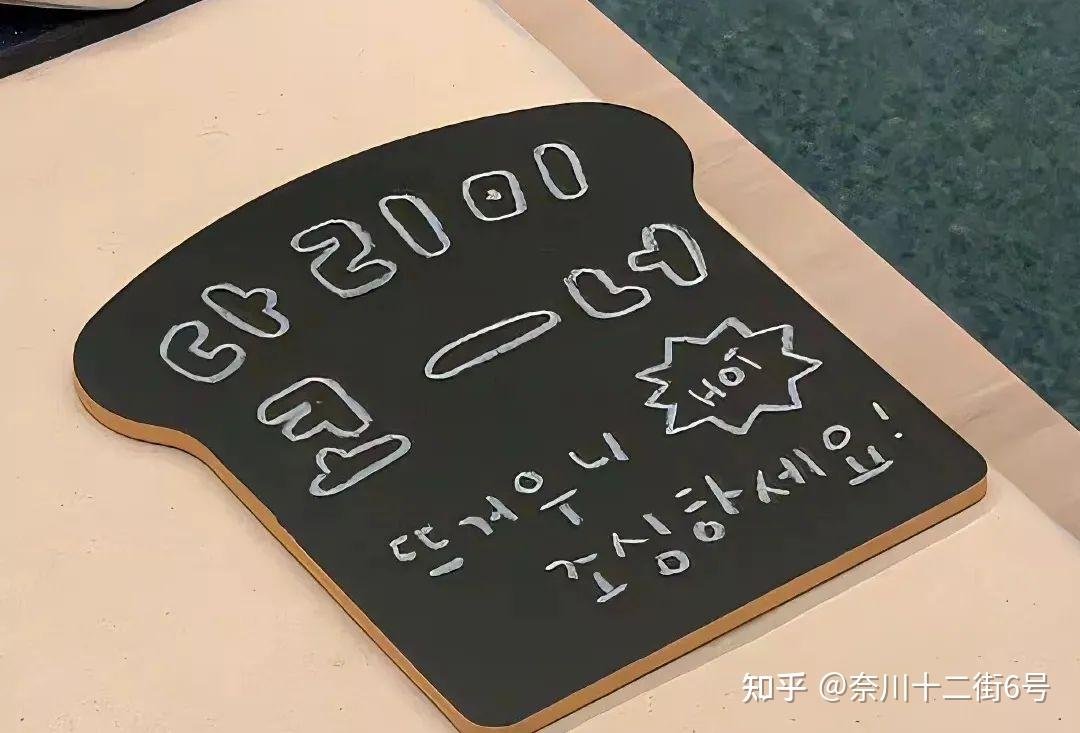 다리미
코ー너
HOT
뜨거우니
조심하세요!
知乎 @奈川十二街6号